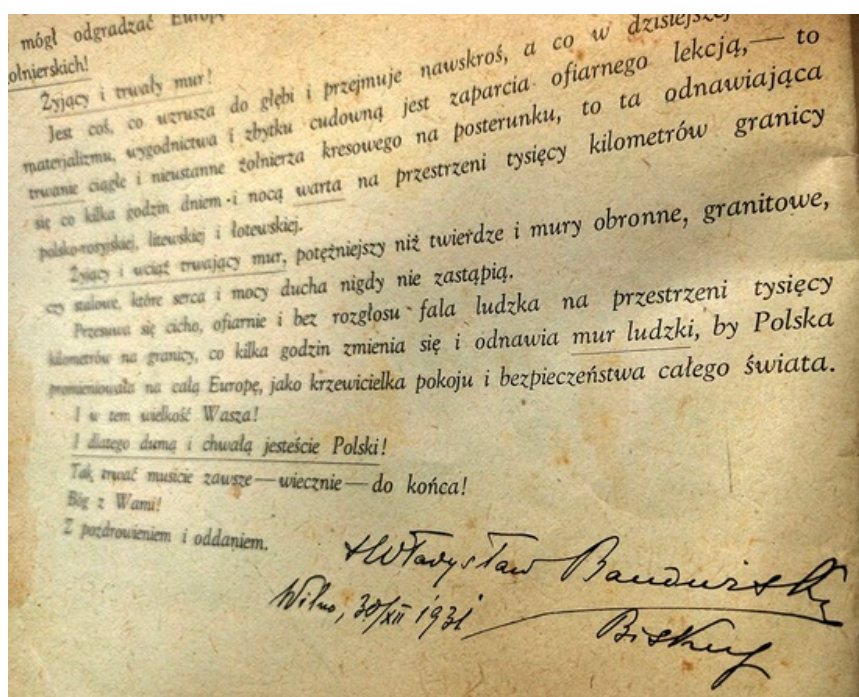 mógł odgradzać Europę
ołnierskich!
Żyjący i trwały mur!
Jest coś, co wzrusza do głębi i przejmuje nawskroś, a co w dzisiejszej
materjalizmu, wygodnictwa i zbytku cudowną jest zaparcia ofiarnego lekcją,— to
trwanie ciągłe i nieustanne żołnierza kresowego na posterunku, to ta odnawiająca
się co kilka godzin dniem i nocą warta na przestrzeni tysięcy kilometrów granicy
polsko-rosyjskiej, litewskiej i łotewskiej.
Żyjący i wciąż trwający mur, potężniejszy niż twierdze i mury obronne, granitowe,
czy stalowe, które serca i mocy ducha nigdy nie zastąpią.
Przesuwa się cicho, ofiarnie i bez rozgłosu fala ludzka na przestrzeni tysięcy
kilometrów na granicy, co kilka godzin zmienia się i odnawia mur ludzki, by Polska
promieniowała na całą Europę, jako krzewicielka pokoju i bezpieczeństwa całego świata.
I w tem wielkość Wasza!
I dlatego dumą i chwałą jesteście Polski!
Tak trwać musicie zawsze—wiecznie—do końca!
Bóg z Wami!
Z pozdrowieniem i oddaniem.
+Władysław Bandurski
Wilno, 30/XII 1931
Biskup